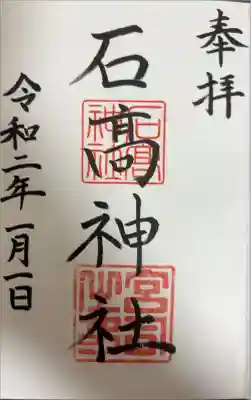 奉拝
石髙神社
令和二年一月一日